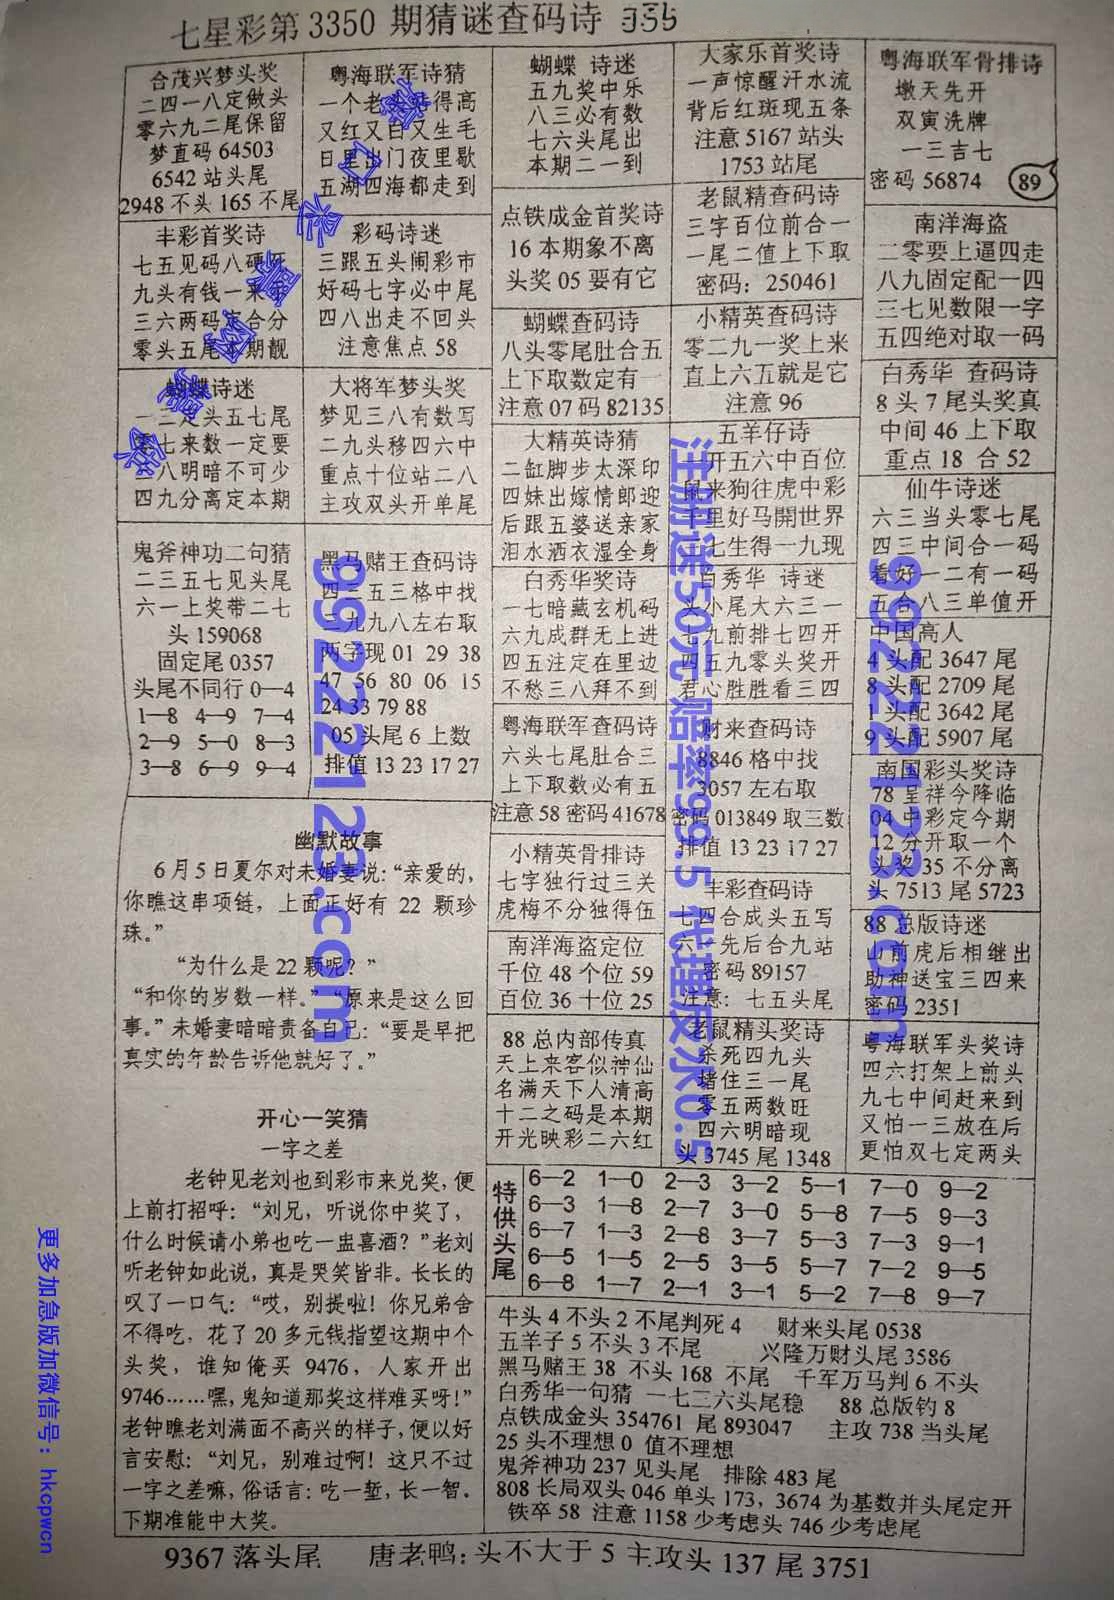 七星彩第3350 期猜谜查码诗 355
合茂兴梦头奖
二四一八定做头
零六九二尾保留
梦直码 64503
6542 站头尾
2948 不头 165 不尾
粤海联军诗猜
一个老 得高
又红又白又生毛
日里出门夜里歇
五湖四海都走到
蝴蝶 诗迷
五九奖中乐
八三必有数
七六头尾出
本期二一到
大家乐首奖诗
一声惊醒汗水流
背后红斑现五条
注意 5167 站头
1753 站尾
粤海联军骨排诗
墩天先开
双寅洗牌
一三吉七
密码 56874
89
丰彩首奖诗
七五见码八硬
九头有钱一来
三六两码 合分
零头五尾本期靓
彩码诗迷
三跟五头闹彩市
好码七字必中尾
四八出走不回头
注意焦点 58
点铁成金首奖诗
16 本期象不离
头奖 05 要有它
老鼠精查码诗
三字百位前合一
一尾二值上下取
密码：250461
南洋海盗
二零要上逼四走
八九固定配一四
三七见数限一字
五四绝对取一码
蝴蝶查码诗
八头零尾肚合五
上下取数定有一
注意 07 码 82135
小精英查码诗
零二九一奖上来
直上六五就是它
注意 96
白秀华 查码诗
8 头 7 尾头奖真
中间 46 上下取
重点 18 合 52
蝴蝶诗迷
一三定头五七尾
零七来数一定要
八明暗不可少
四九分离定本期
大将军梦头奖
梦见三八有数写
二九头移四六中
重点十位站二八
主攻双头开单尾
大精英诗猜
二缸脚步太深印
四妹出嫁情郎迎
后跟五婆送亲家
泪水洒衣湿全身
五羊仔诗
开五六中百位
鼠来狗往虎中彩
里好马開世界
七生得一九现
仙牛诗迷
六三当头零七尾
四三中间合一码
看好一二有一码
五合八三单值开
鬼斧神功二句猜
二三五七见头尾
六一上奖带二七
头 159068
固定尾 0357
头尾不同行 0—4
1—8 4—9 7—4
2—9 5—0 8—3
3—8 6—9 9—4
黑马赌王查码诗
四三五三格中找
二九九八左右取
两字现 01 29 38
47 56 80 06 15
24 33 79 88
05 头尾 6 上数
排值 13 23 17 27
白秀华奖诗
一七暗藏玄机码
六九成群无上进
四五注定在里边
不愁三八拜不到
白秀华 诗迷
头小尾大六三一
七九前排七四开
四五九零头奖开
君心胜胜看三四
中国高人
4 头配 3647 尾
8 头配 2709 尾
1 头配 3642 尾
9 头配 5907 尾
粤海联军查码诗
六头七尾肚合三
上下取数必有五
注意 58 密码 41678
财来查码诗
8846 格中找
3057 左右取
密码 013849 取三数
排值 13 23 17 27
南国彩头奖诗
78 呈祥今降临
04 中彩定今期
12 分开取一个
头奖 35 不分离
头 7513 尾 5723
幽默故事
6月5日夏尔对未婚妻说：“亲爱的，
你瞧这串项链，上面正好有 22 颗珍
珠。”
“为什么是 22 颗呢？”
“和你的岁数一样。” “原来是这么回
事。”未婚妻暗暗责备自己：“要是早把
真实的年龄告诉他就好了。”
小精英骨排诗
七字独行过三关
虎梅不分独得伍
丰彩查码诗
七四合成头五写
六 先后合九站
密码 89157
注意：七五头尾
88 总版诗迷
山前虎后相继出
助神送宝三四来
密码 2351
南洋海盗定位
千位 48 个位 59
百位 36 十位 25
88 总内部传真
天上来客似神仙
名满天下人清高
十二之码是本期
开光映彩二六红
老鼠精头奖诗
杀死四九头
堵住三一尾
零五两数旺
四六明暗现
头 3745 尾 1348
粤海联军头奖诗
四六打架上前头
九七中间赶来到
又怕一三放在后
更怕双七定两头
开心一笑猜
一字之差
老钟见老刘也到彩市来兑奖，便
上前打招呼：“刘兄，听说你中奖了，
什么时候请小弟也吃一盅喜酒？”老刘
听老钟如此说，真是哭笑皆非。长长的
叹了一口气：“哎，别提啦！你兄弟舍
不得吃，花了 20 多元钱指望这期中个
头奖，谁知俺买 9476，人家开出
9746……嘿，鬼知道那奖这样难买呀！”
老钟瞧老刘满面不高兴的样子，便以好
言安慰：“刘兄，别难过啊！这只不过
一字之差嘛，俗话言：吃一堑，长一智。
下期准能中大奖。
特供头尾
6—2 1—0 2—3 3—2 5—1 7—0 9—2
6—3 1—8 2—7 3—0 5—8 7—5 9—3
6—7 1—3 2—8 3—7 5—3 7—3 9—1
6—5 1—5 2—5 3—5 5—7 7—2 9—5
6—8 1—7 2—1 3—1 5—2 7—8 9—7
牛头 4 不头 2 不尾判死 4 财来头尾 0538
五羊子 5 不头 3 不尾 兴隆万财头尾 3586
黑马赌王 38 不头 168 不尾 千军万马判 6 不头
白秀华一句猜 一七三六头尾稳 88 总版钓 8
点铁成金头 354761 尾 893047 主攻 738 当头尾
25 头不理想 0 值不理想
鬼斧神功 237 见头尾 排除 483 尾
808 长局双头 046 单头 173，3674 为基数并头尾定开
铁卒 58 注意 1158 少考虑头 746 少考虑尾
9367 落头尾 唐老鸭：头不大于 5 主攻头 137 尾 3751
99222123.com
注册送50元 赔率99.5 代理反水0.5
99222123.com
更多加急版加微信号：hkcpwcn